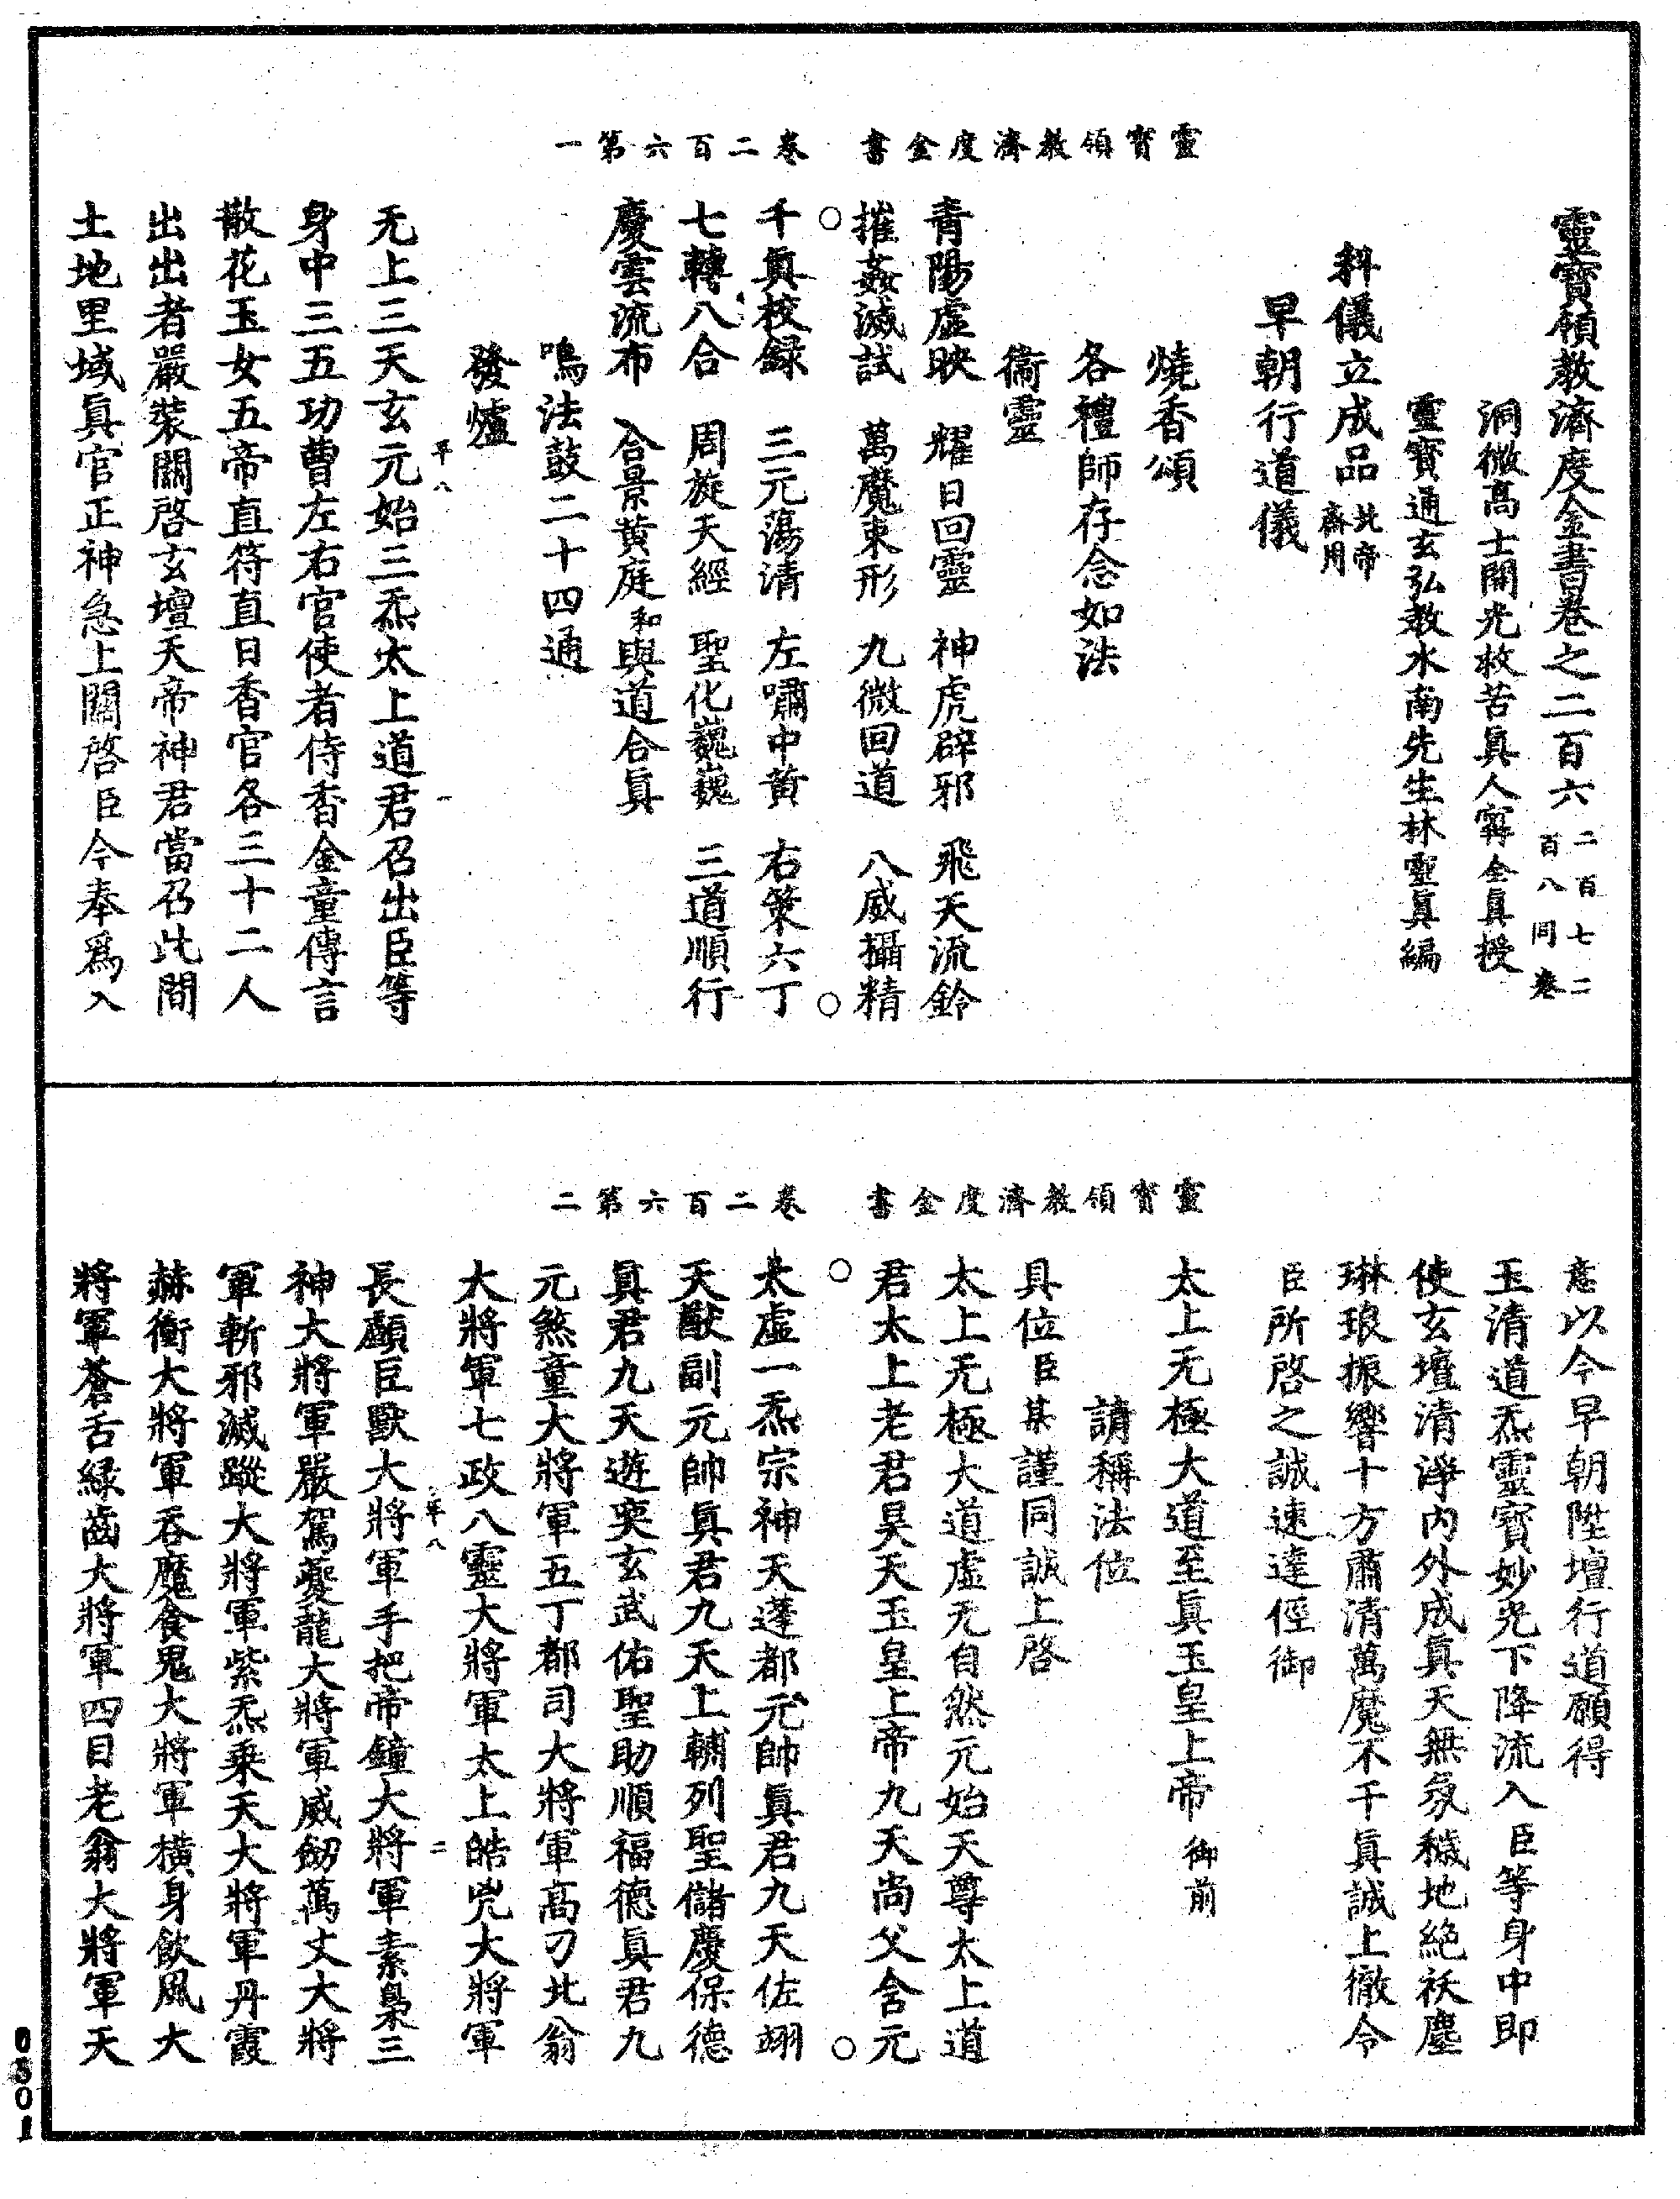 靈寶領教濟度金書　卷二百六第一
靈寶領教濟度金書卷之二百六 二百七二百八同卷
洞微高士開光救苦眞人甯全眞授
靈寶通玄弘教水南先生林靈眞編
科儀立成品 北帝齋用
早朝行道儀
燒香頌
各禮師存念如法
衞靈
青陽虛映　耀日回靈　神虎辟邪　飛天流鈴
摧姦滅試　萬魔束形　九微回道　八威攝精
千眞校録　三元蕩清　左嘯中黄　右策六丁
七轉八合　周旋天經　聖化巍巍　三道順行
慶雲流布　合景黄庭 和 與道合眞
鳴法鼓二十四通
發爐
平八　一
无上三天玄元始三炁太上道君召出臣等
身中三五功曹左右官使者侍香金童傳言
散花玉女五帝直符直日香官各三十二人
出出者嚴裝關啓玄壇天帝神君當召此間
土地里域眞官正神急上關啓臣今奉爲入
靈寶領教濟度金書　卷二百六第二
意以今早朝陞壇行道願得
玉清道炁靈寶妙光下降流入臣等身中即
使玄壇清淨内外成眞天無氛穢地絶祅塵
琳琅振響十方肅清萬魔不干眞誠上徹令
臣所啓之誠速達徑御
太上无極大道至眞玉皇上帝 御前
請稱法位
具位臣某謹同誠上啓
太上无極大道虛无自然元始天尊太上道
君太上老君昊天玉皇上帝九天尚父舍元
太虛一炁宗神天蓬都元帥眞君九天佐翊
天猷副元帥眞君九天上輔列聖儲慶保德
眞君九天遊奕玄武佑聖助順福德眞君九
元煞童大將軍五丁都司大將軍高刁北翁
大將軍七政八靈大將軍太上皓兇大將軍
平八　二
長顱巨獸大將軍手把帝鐘大將軍素梟三
神大將軍嚴駕夔龍大將軍威劒萬丈大將
軍斬邪滅蹤大將軍紫炁乘天大將軍丹霞
赫衝大將軍吞魔食鬼大將軍橫身飲風大
將軍蒼舌緑齒大將軍四目老翁大將軍天
0301